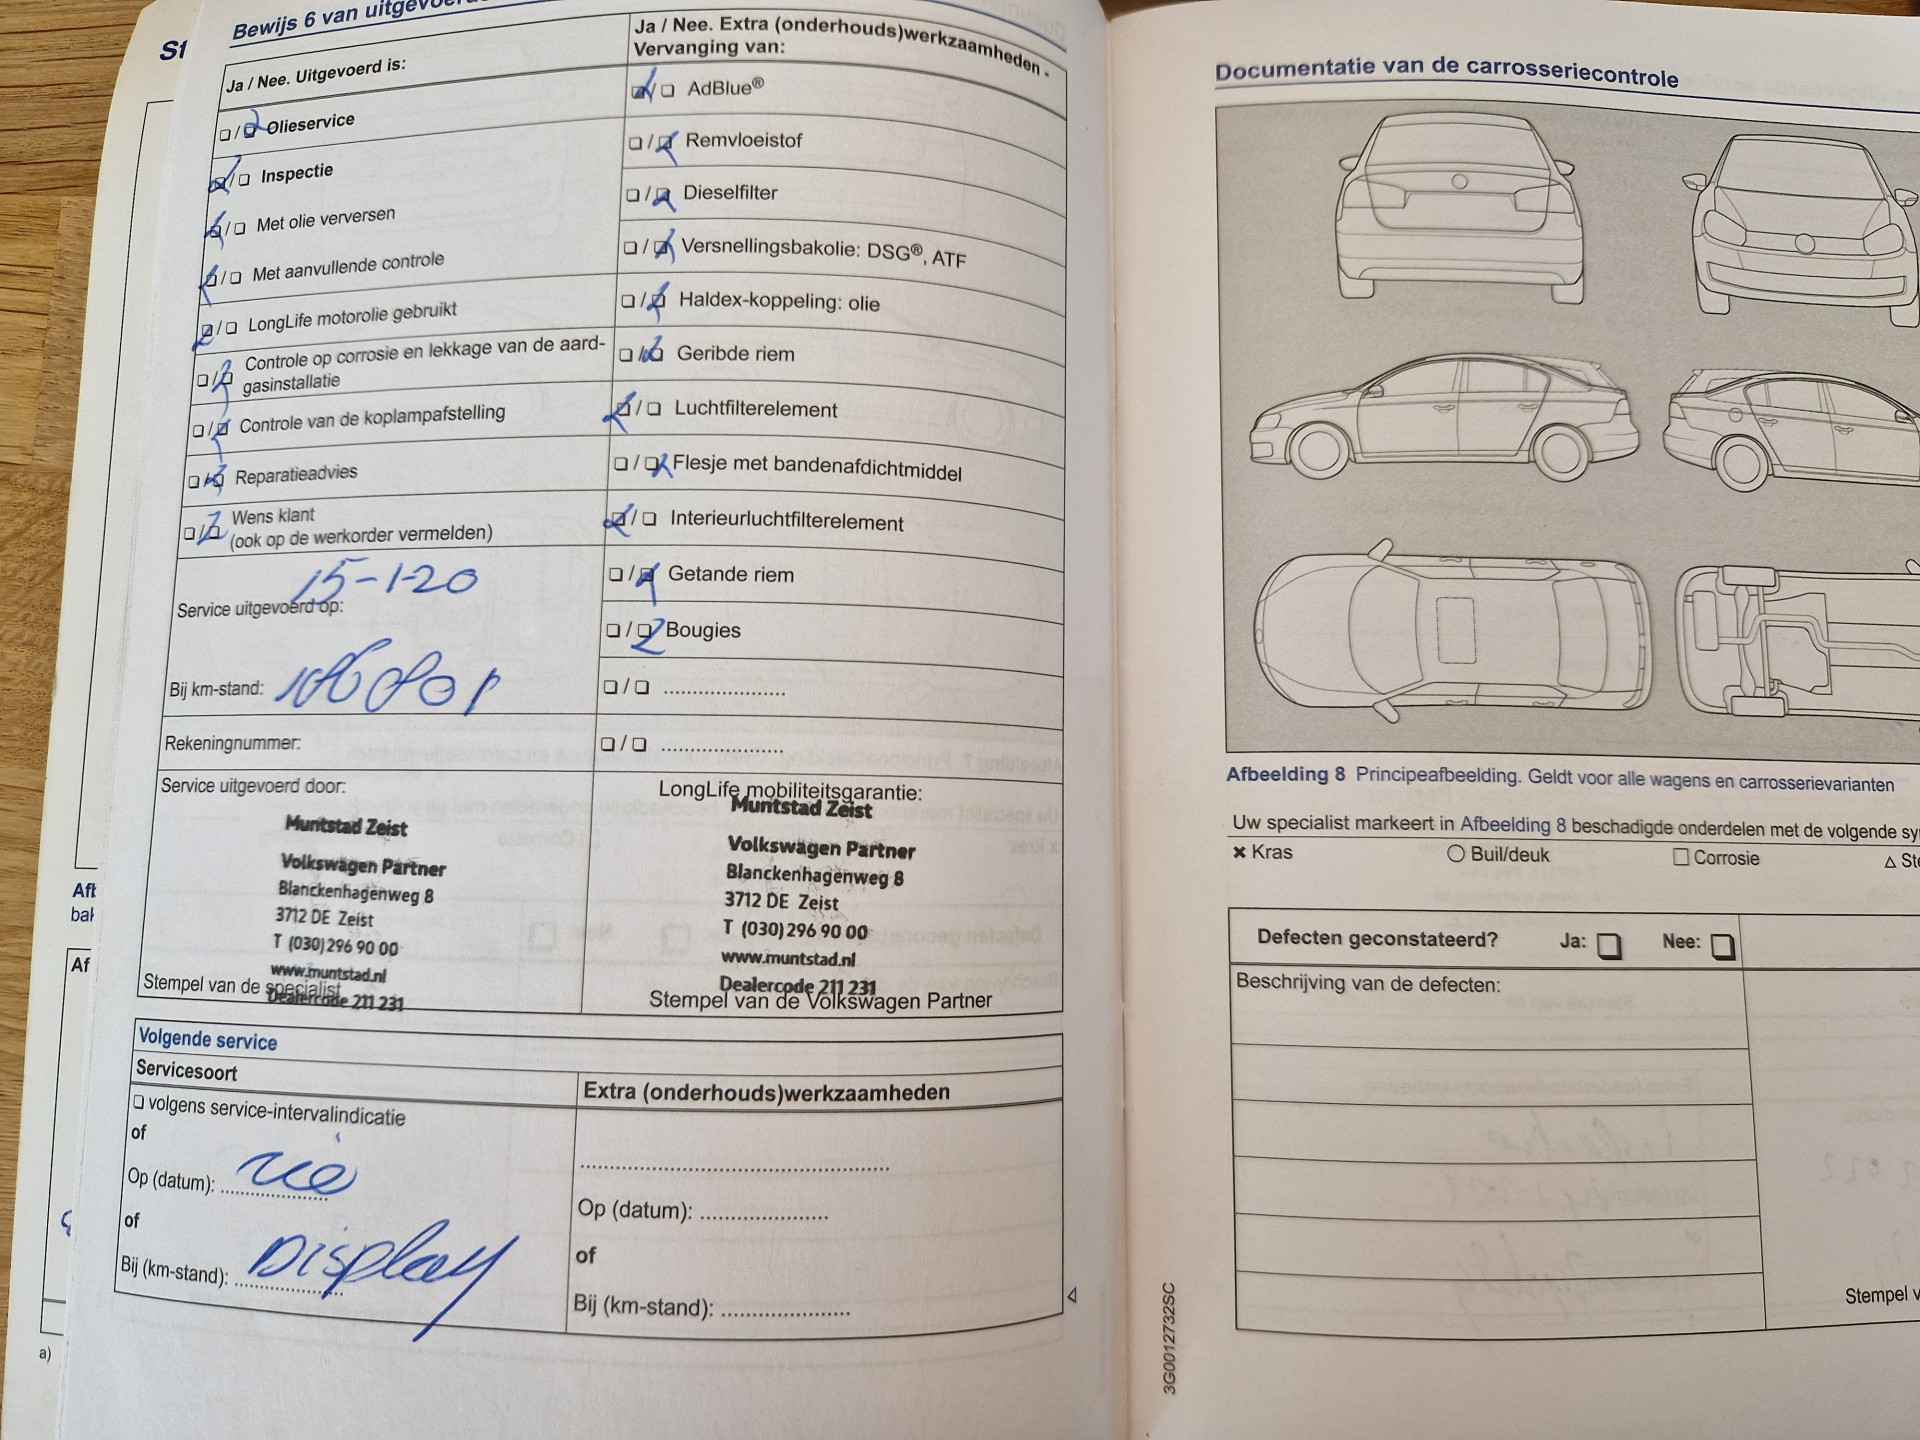 St
Bewijs 6 van
Ja / Nee. Uitgevoerd is:
❏/❏ Olieservice
❏/❏ Inspectie
❏/❏ Met olie verversen
❏/❏ Met aanvullende controle
❏/❏ LongLife motorolie gebruikt
❏/❏ Controle op corrosie en lekkage van de aard-
gasinstallatie
❏/❏ Controle van de koplampafstelling
❏/❏ Reparatieadvies
❏/❏ Wens klant
(ook op de werkorder vermelden)
15-1-20
Service uitgevoerd op:
Bij km-stand:
Rekeningnummer:
Service uitgevoerd door:
Muntstad Zeist
Volkswagen Partner
Blanckenhagenweg 8
3712 DE Zeist
T (030) 296 90 00
www.muntstad.nl
Dealercode 211 231
Stempel van de specialist
Ja / Nee. Extra (onderhouds)werkzaamheden -
Vervanging van:
❏/❏ AdBlue®
❏/❏ Remvloeistof
❏/❏ Dieselfilter
❏/❏ Versnellingsbakolie: DSG®, ATF
❏/❏ Haldex-koppeling: olie
❏/❏ Geribde riem
❏/❏ Luchtfilterelement
❏/❏ Flesje met bandenafdichtmiddel
❏/❏ Interieurluchtfilterelement
❏/❏ Getande riem
❏/❏ Bougies
❏/❏ ......................
❏/❏ ......................
LongLife mobiliteitsgarantie:
Muntstad Zeist
Volkswagen Partner
Blanckenhagenweg 8
3712 DE Zeist
T (030) 296 90 00
www.muntstad.nl
Dealercode 211 231
Stempel van de Volkswagen Partner
Volgende service
Servicesoort
❏ volgens service-intervalindicatie
of
Op (datum): zie
of
Bij (km-stand): Display
Extra (onderhouds)werkzaamheden
Op (datum): ......................
of
Bij (km-stand): ......................
a)
Documentatie van de carrosseriecontrole
Afbeelding 8 Principeafbeelding. Geldt voor alle wagens en carrosserievarianten
Uw specialist markeert in Afbeelding 8 beschadigde onderdelen met de volgende
× Kras
○ Buil/deuk
□ Corrosie
Defecten geconstateerd? Ja: ❏ Nee: ❏
Beschrijving van de defecten:
Stempel
3G0012732SC